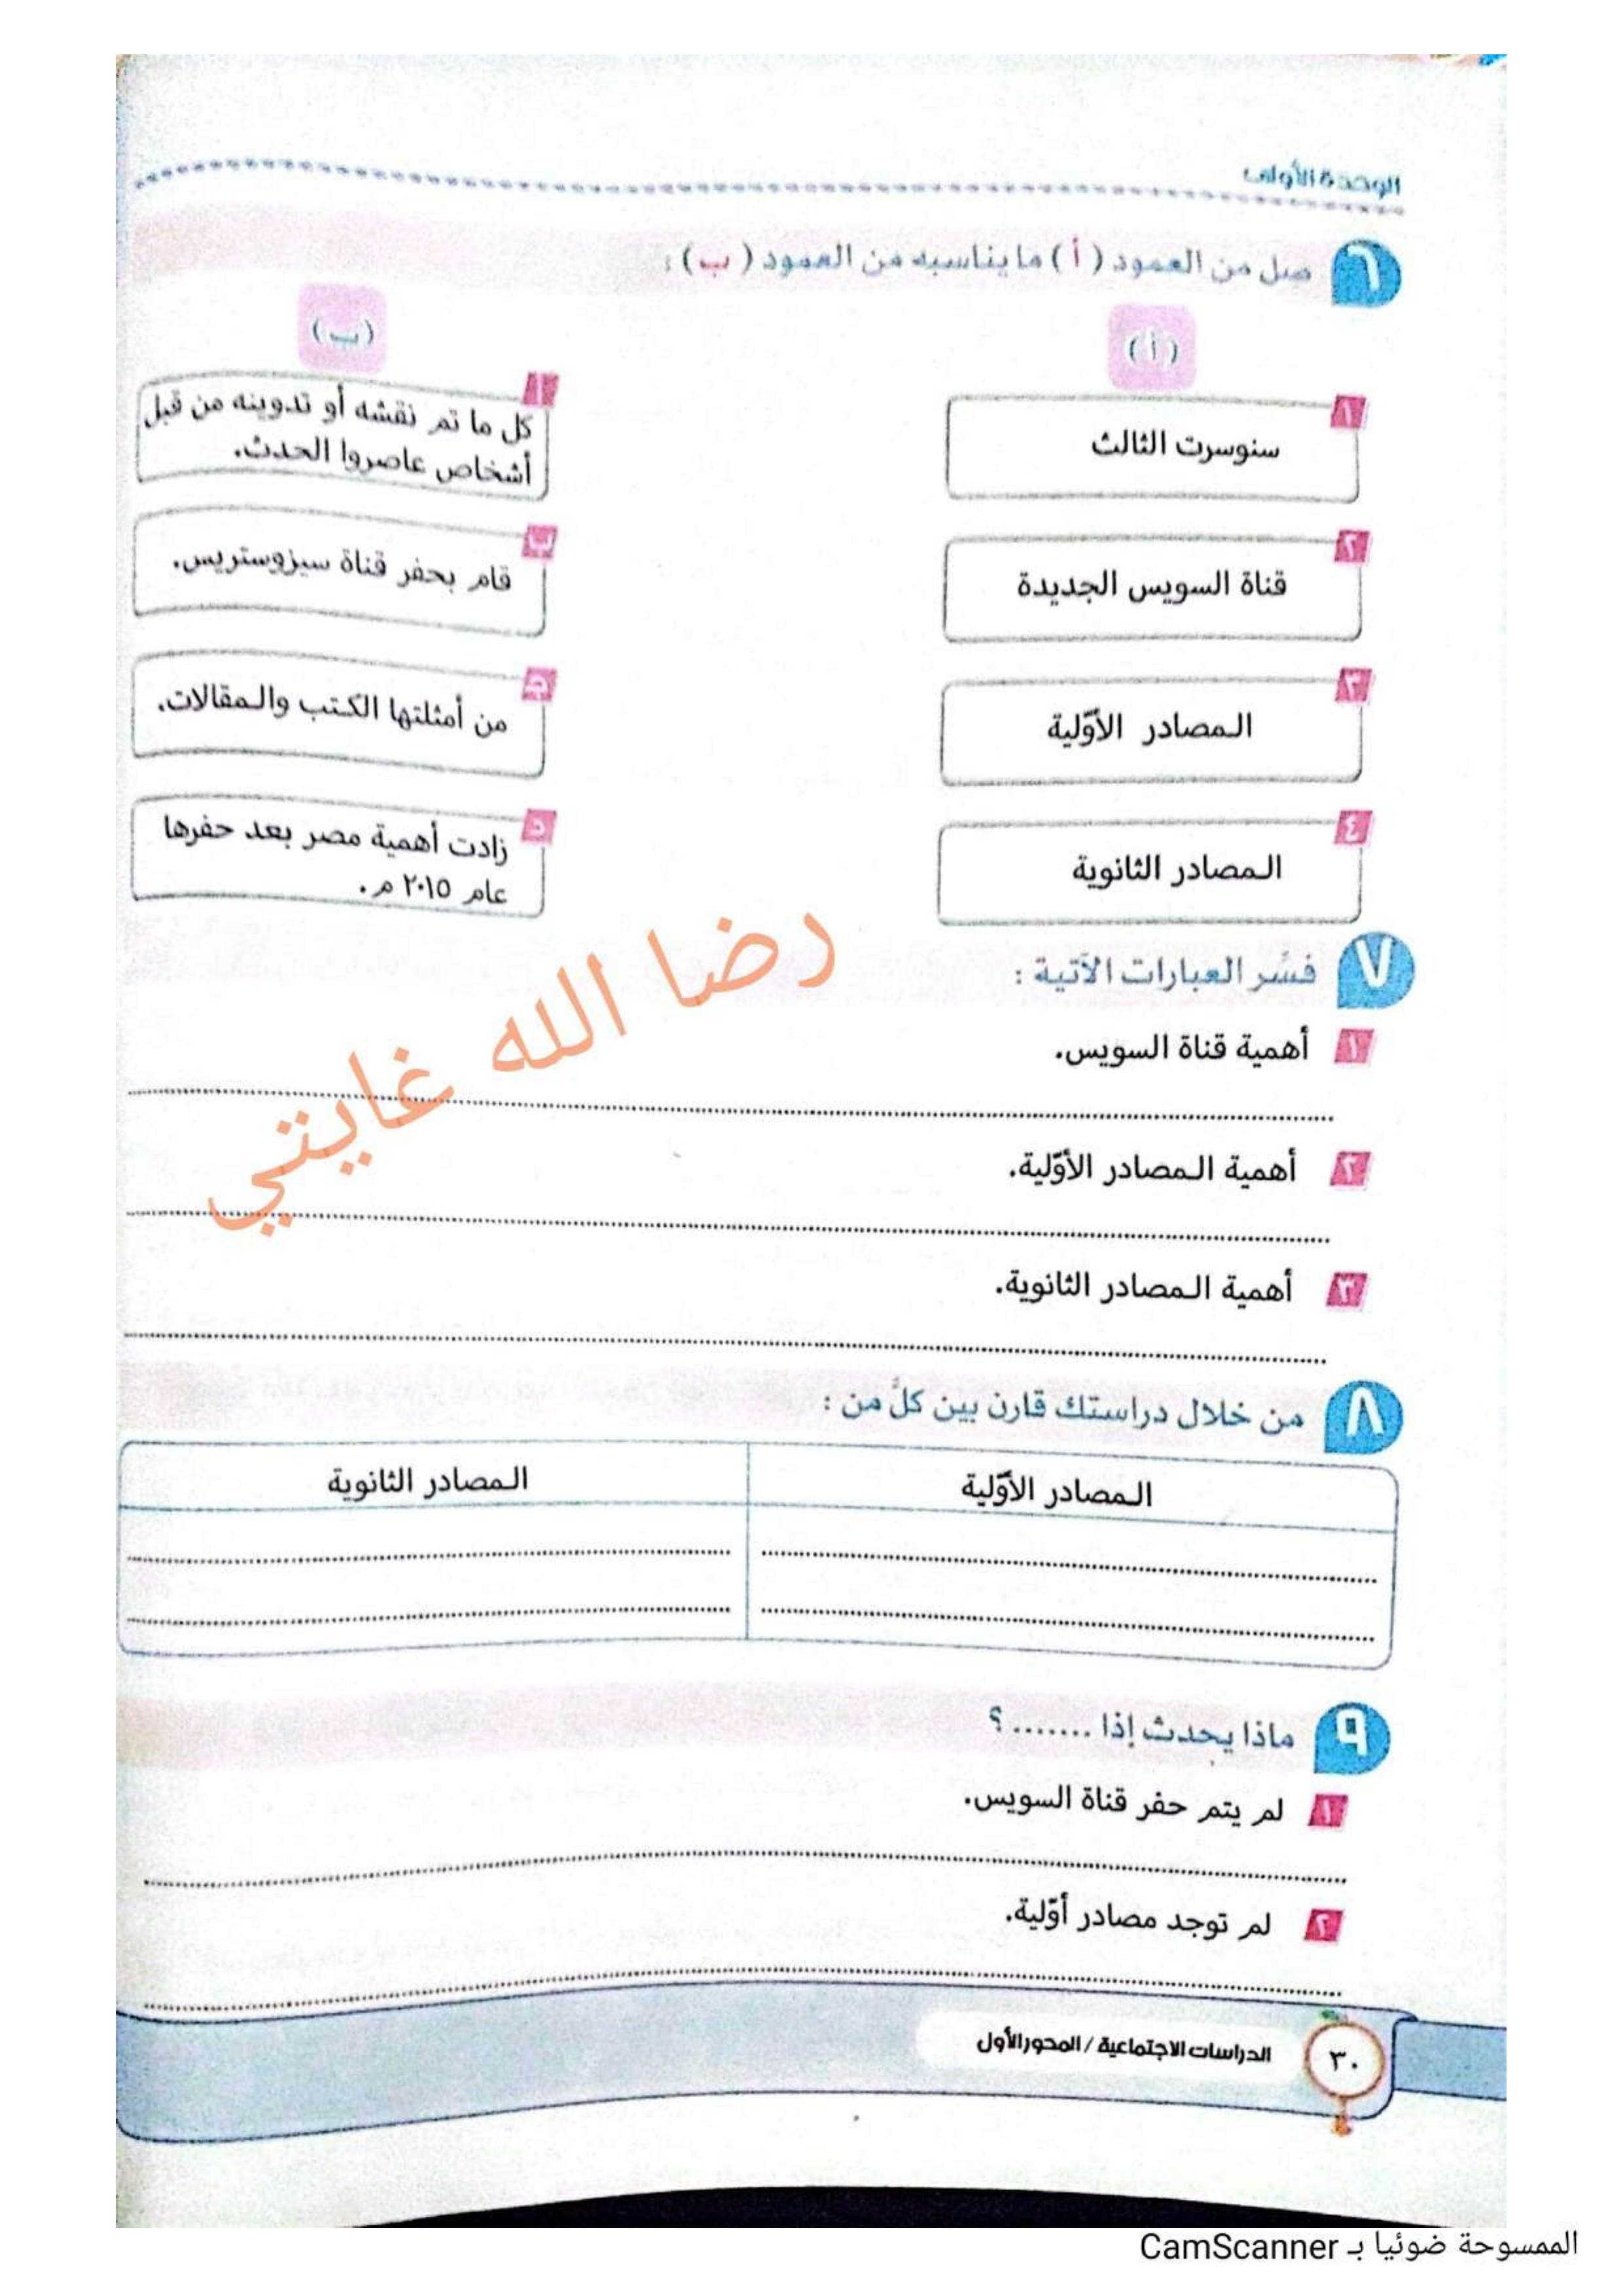 الوحدة الأولى
٦ صل من العمود (أ) ما يناسبه من العمود (ب) :
(أ)
(ب)
١ سنوسرت الثالث
أ كل ما تم نقشه أو تدوينه من قبل
أشخاص عاصروا الحدث.
٢ قناة السويس الجديدة
ب قام بحفر قناة سيزوستريس.
٣ المصادر الأوّلية
ج من أمثلتها الكتب والمقالات.
٤ المصادر الثانوية
د زادت أهمية مصر بعد حفرها
عام ٢٠١٥ م.
رضا الله غايتي
٧ فسِّر العبارات الآتية :
١ أهمية قناة السويس.
٢ أهمية المصادر الأوّلية.
٣ أهمية المصادر الثانوية.
٨ من خلال دراستك قارن بين كلٍّ من :
المصادر الأوّلية
المصادر الثانوية
٩ ماذا يحدث إذا ....... ؟
١ لم يتم حفر قناة السويس.
٢ لم توجد مصادر أوّلية.
٣٠ الدراسات الاجتماعية / المحور الأول
الممسوحة ضوئيا بـ CamScanner